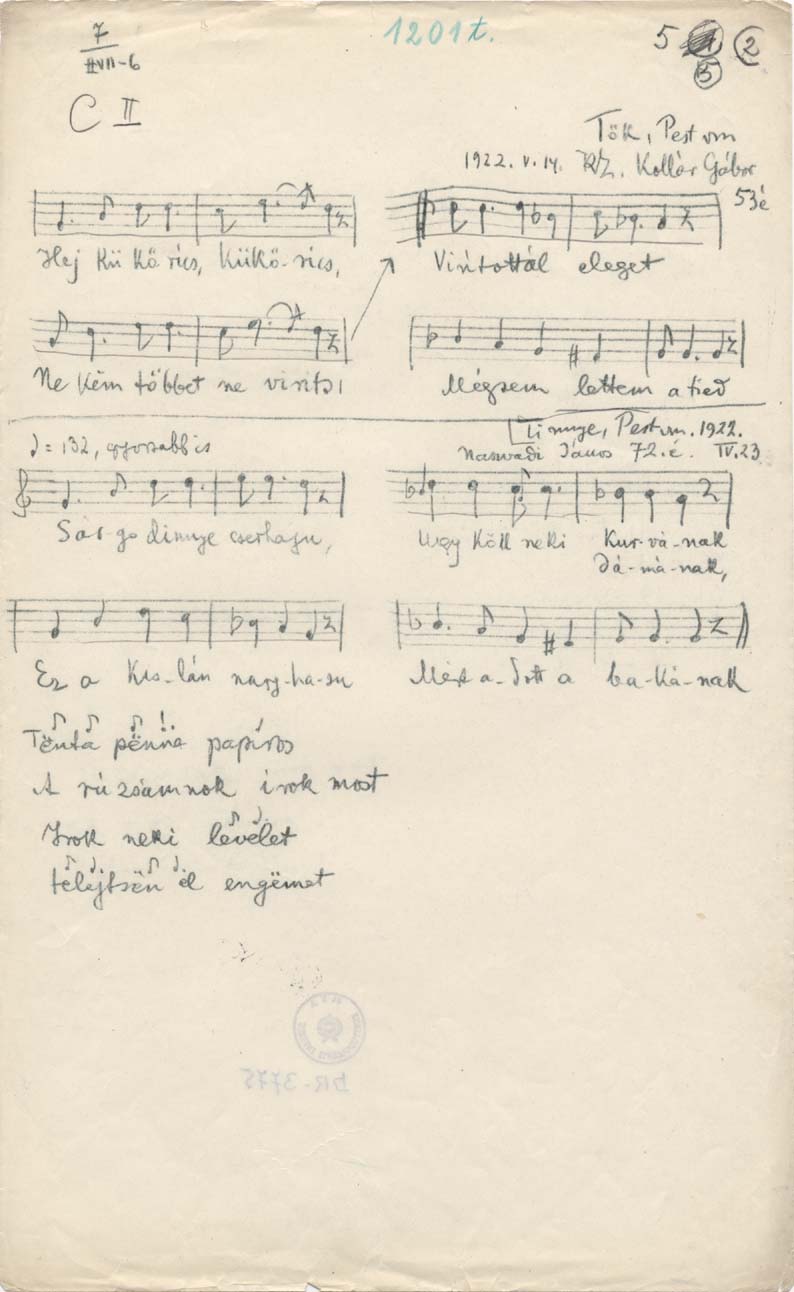 7
VII-6
1201 t.
5 ② ⑤
C II
Tök, Pest vm
1922. V. 14. Kollár Gábor
53é
Hej Kü kö rics, Kükö-rics,
Viritottál eleget
Ne Kém többet ne virits!
Mégsem lettem a tied
♩=132, gyorsabb is
Tinnye, Pest vm. 1922.
János 72.é. IV.23
Sár ga dinnye cserhaju,
Ugy Köll neki Kur-vá-nak
Dá-má-nak,
Ez a Kis-lán nagy-ha-su
Mért a-dott a ba-ká-nak
Tënta pënna papíros
A rúzsámnok irok most
Irok neki levelet
felejtsën el engëmet
DR-3775